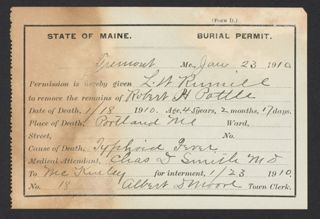 (FORM D.)
STATE OF MAINE. BURIAL PERMIT.
Tremont Me., Jan 23 1910
Permission is hereby given L. W. Rumill
to remove the remains of Robert H Pottle
Date of Death, 1/18 1910. Age, 41 years, 2 months, 17 days.
Place of Death, Portland Me Ward,
Street, No.
Cause of Death, Typhoid Fever
Medical Attendant, Chas D Smith MD
To McKinley for interment, 1/23 1910.
No. 18 Albert Town Clerk.